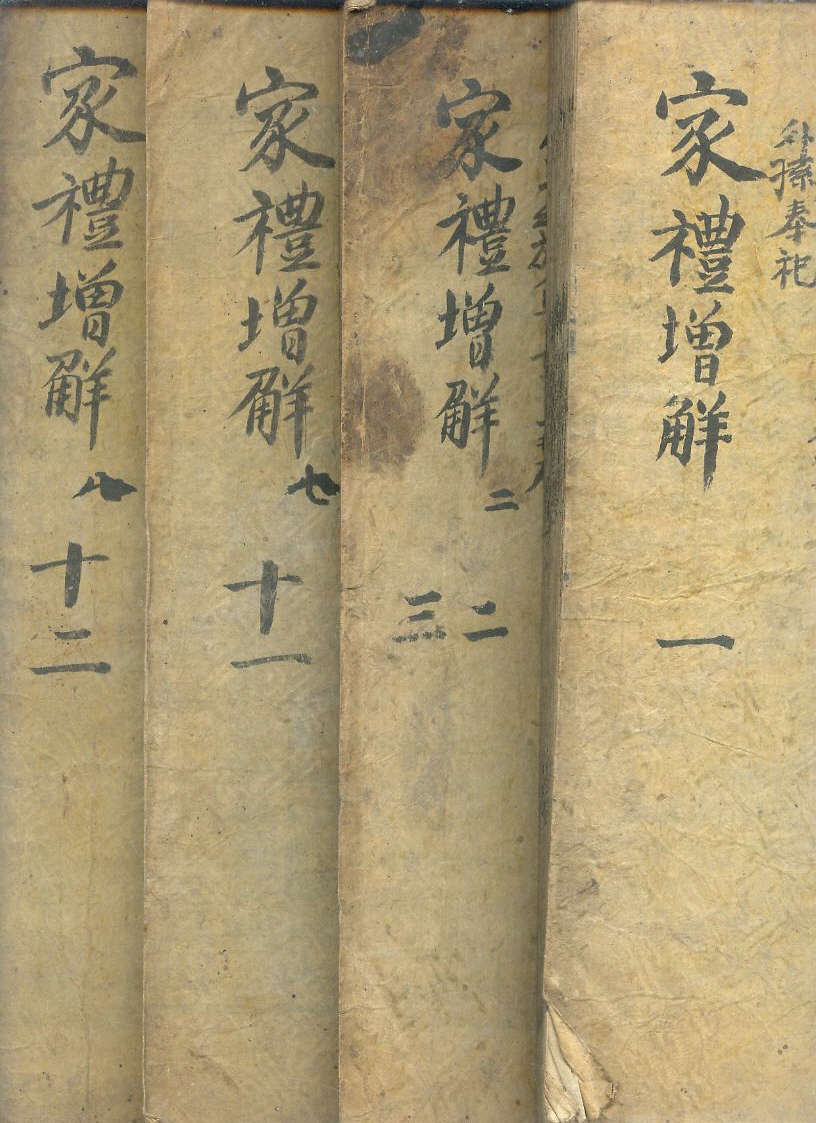 外孫奉祀
家禮增解 一
家禮增解 二
二
三
家禮增解 七
十一
家禮增解 八
十二